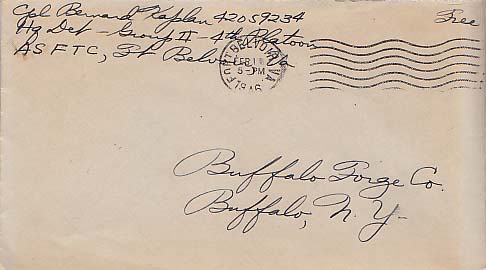 Cpl Bernard Kaplan 42059234
Free
Hq Det - Group II - 4th Platoon
ASFTC, Ft Belvoir, Va
FORT BELVOIR, VA.
FEB
5-PM
1946
Buffalo Forge Co.
Buffalo, N.Y.